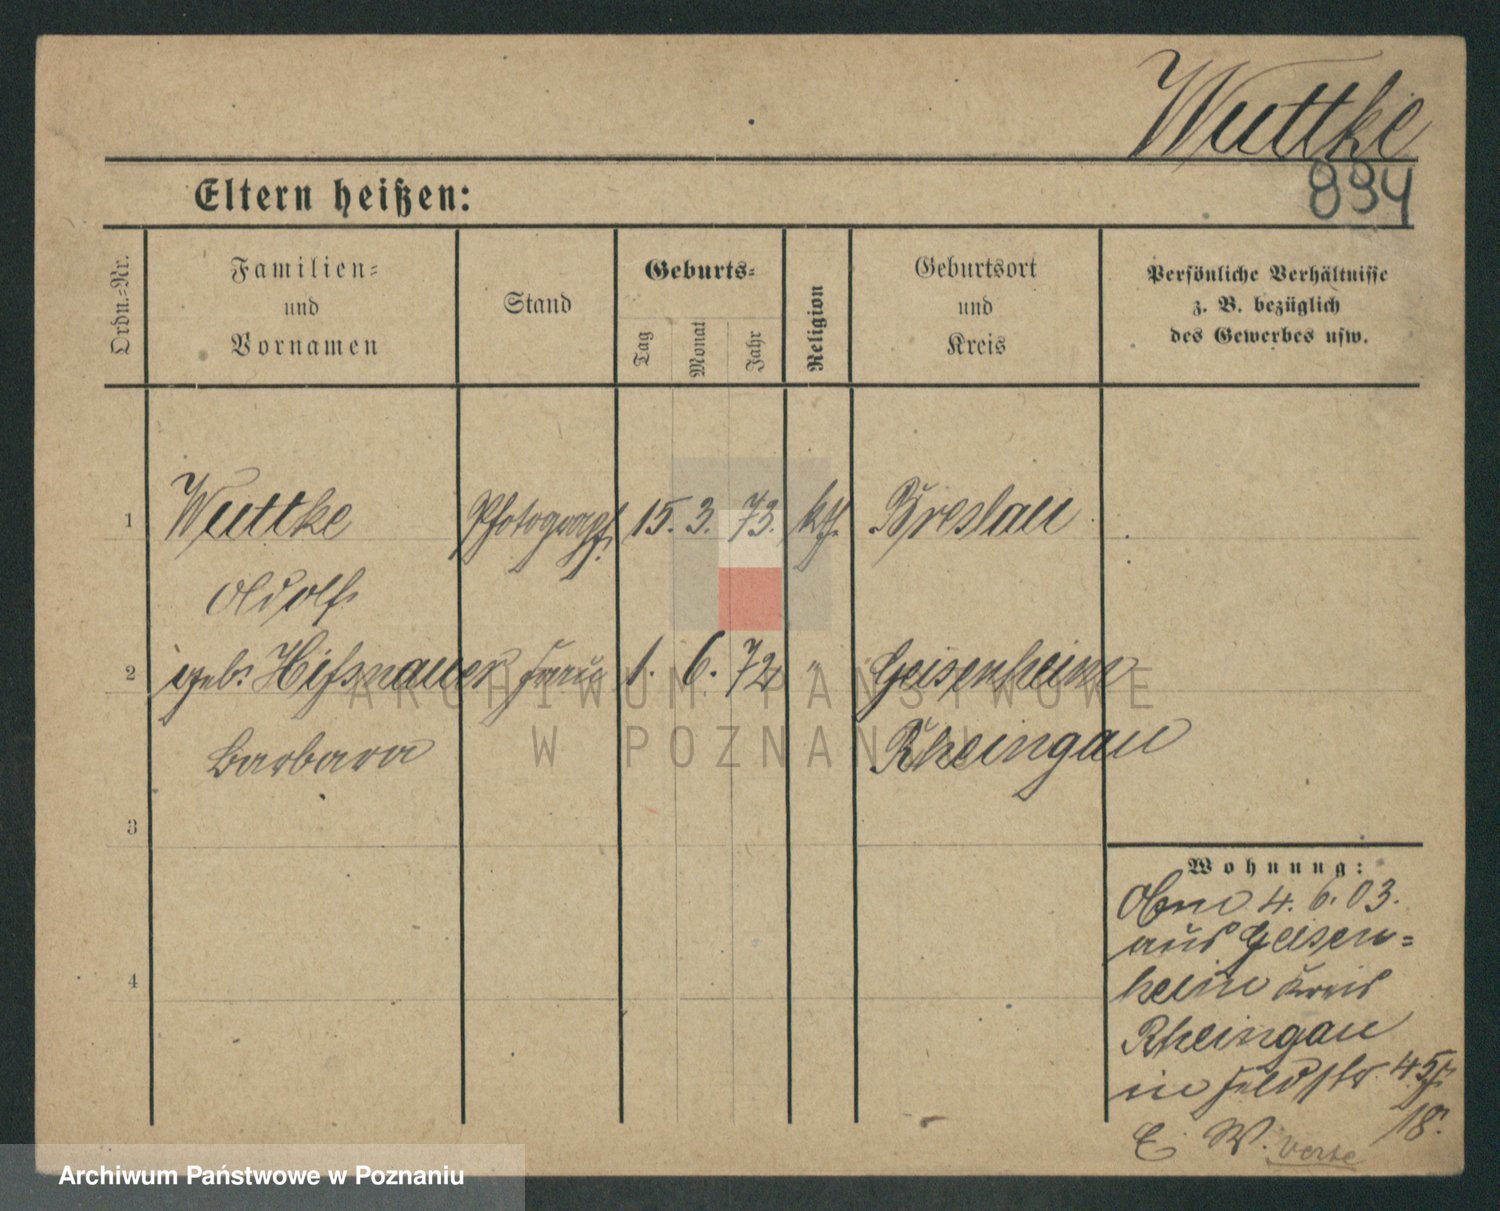 Wuttke
894
Eltern heißen:
Ordn.-Nr.
Familien-
und
Vornamen
Stand
Geburts-
Tag
Monat
Jahr
Religion
Geburtsort
und
Kreis
Persönliche Verhältnisse
z. B. bezüglich
des Gewerbes usw.
1 Wuttke Photograph 15. 3. 73. kth. Breslau
Adolf
2 geb. Frau 1. 6. 72 " Geisenheim
Barbara Rheingau
3
4
Wohnung:
4. 6. 03.
aus Geisen-
heim Kreis
Rheingau
in Feldstr.
18.
E. W.
verte
ARCHIWUM PAŃSTWOWE
W POZNANIU
Archiwum Państwowe w Poznaniu